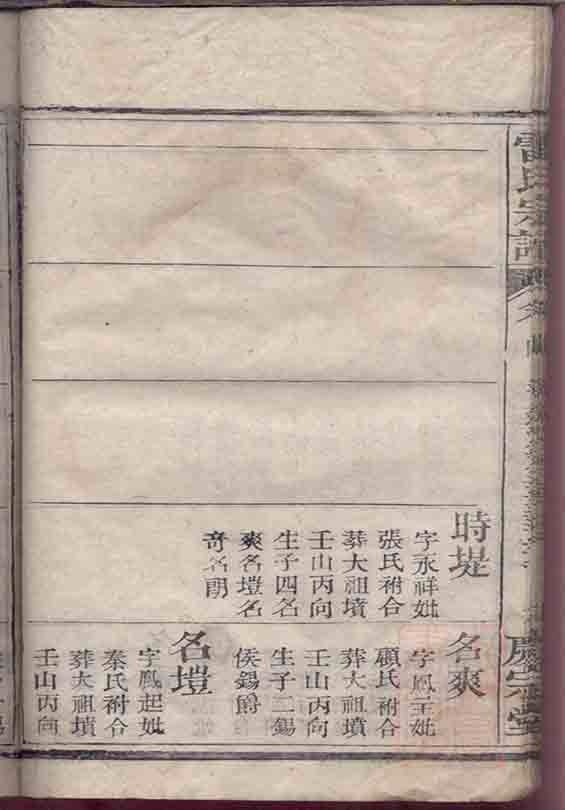 雷氏宗譜
時堤
字永祥妣
張氏祔合
葬大祖墳
壬山丙向
生子四名
爽名塏名
奇名朗
名爽
字鳳主妣
顧氏祔合
葬大祖墳
壬山丙向
生子二錫
侯錫爵
名塏
字鳳起妣
秦氏祔合
葬大祖墳
壬山丙向